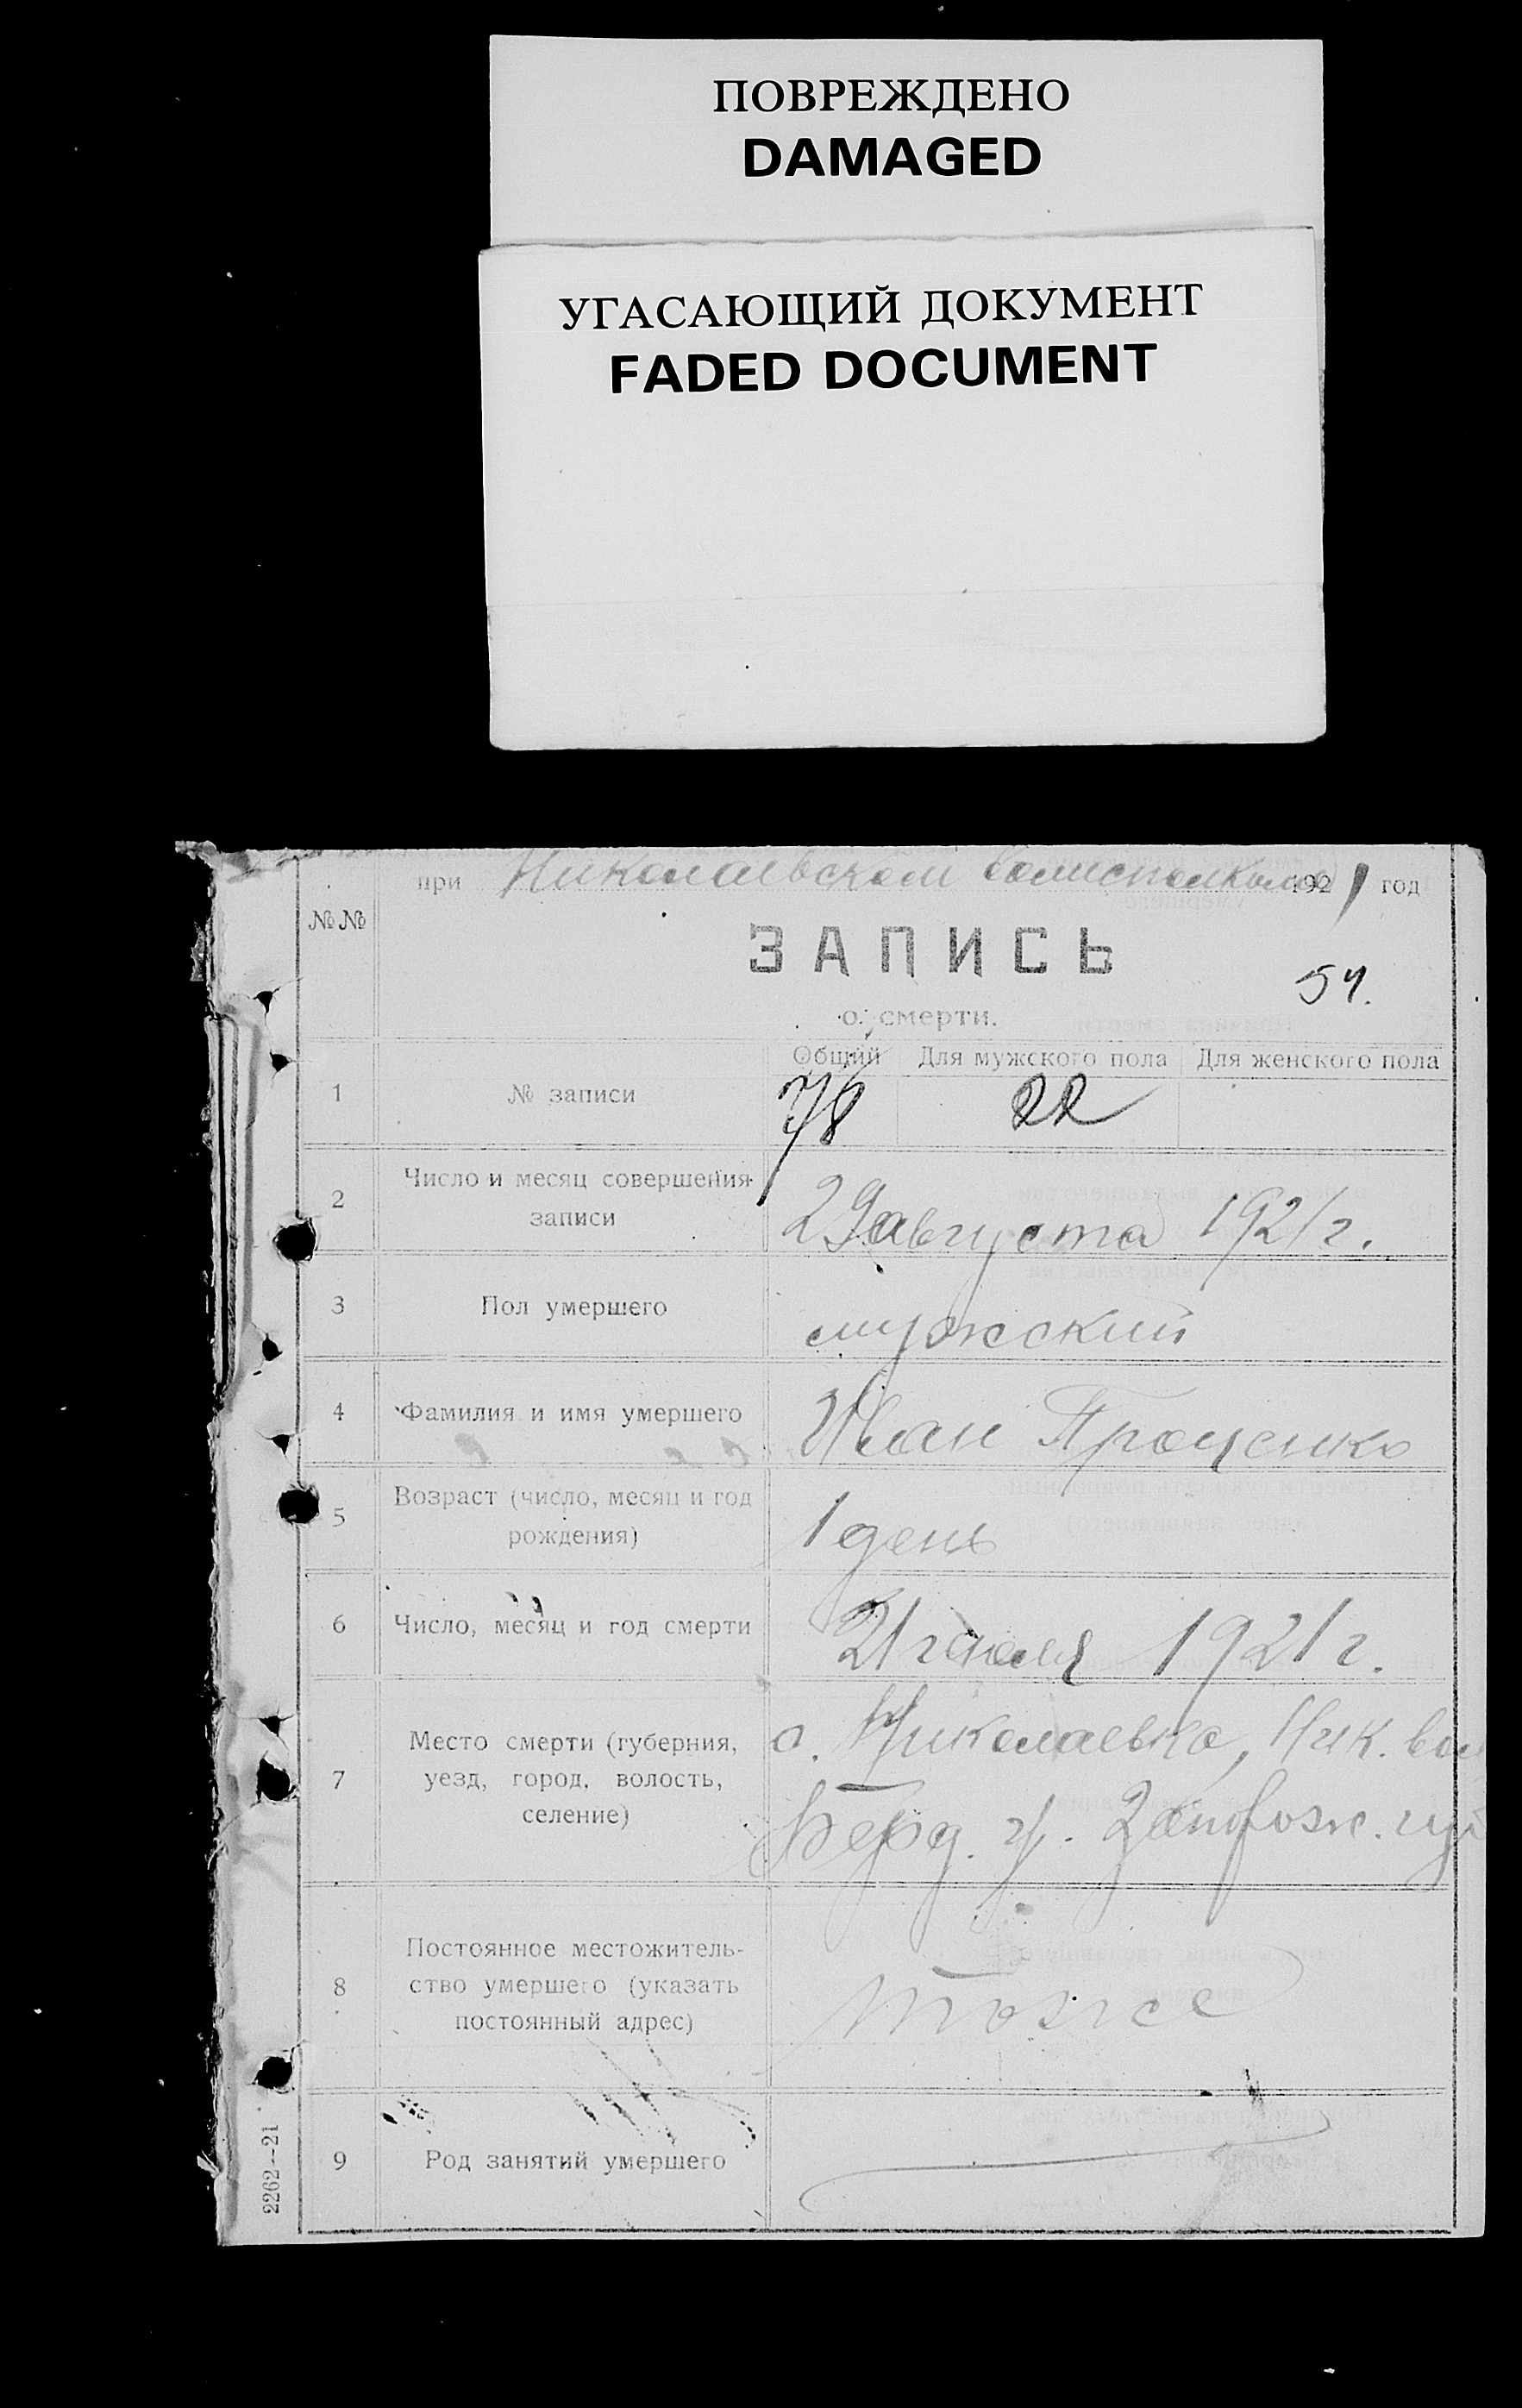 ПОВРЕЖДЕНО
DAMAGED
УГАСАЮЩИЙ ДОКУМЕНТ
FADED DOCUMENT
при Николаевском волисполкоме 1921 год
№№
ЗАПИСЬ
54.
о смерти.
Общий Для мужского пола Для женского пола
1 № записи 78 22
2 Число и месяц совершения
записи
29 августа 1921 г.
3 Пол умершего мужский
4 Фамилия и имя умершего Иван Проценко
5 Возраст (число, месяц и год
рождения)
1 день
6 Число, месяц и год смерти 21 1921 г.
7 Место смерти (губерния,
уезд, город, волость,
селение)
с. Николаевка, Ник. вол
Берд. у. Запорож. губ
8 Постоянное местожитель-
ство умершего (указать
постоянный адрес)
тоже
9 Род занятий умершего
2262--21